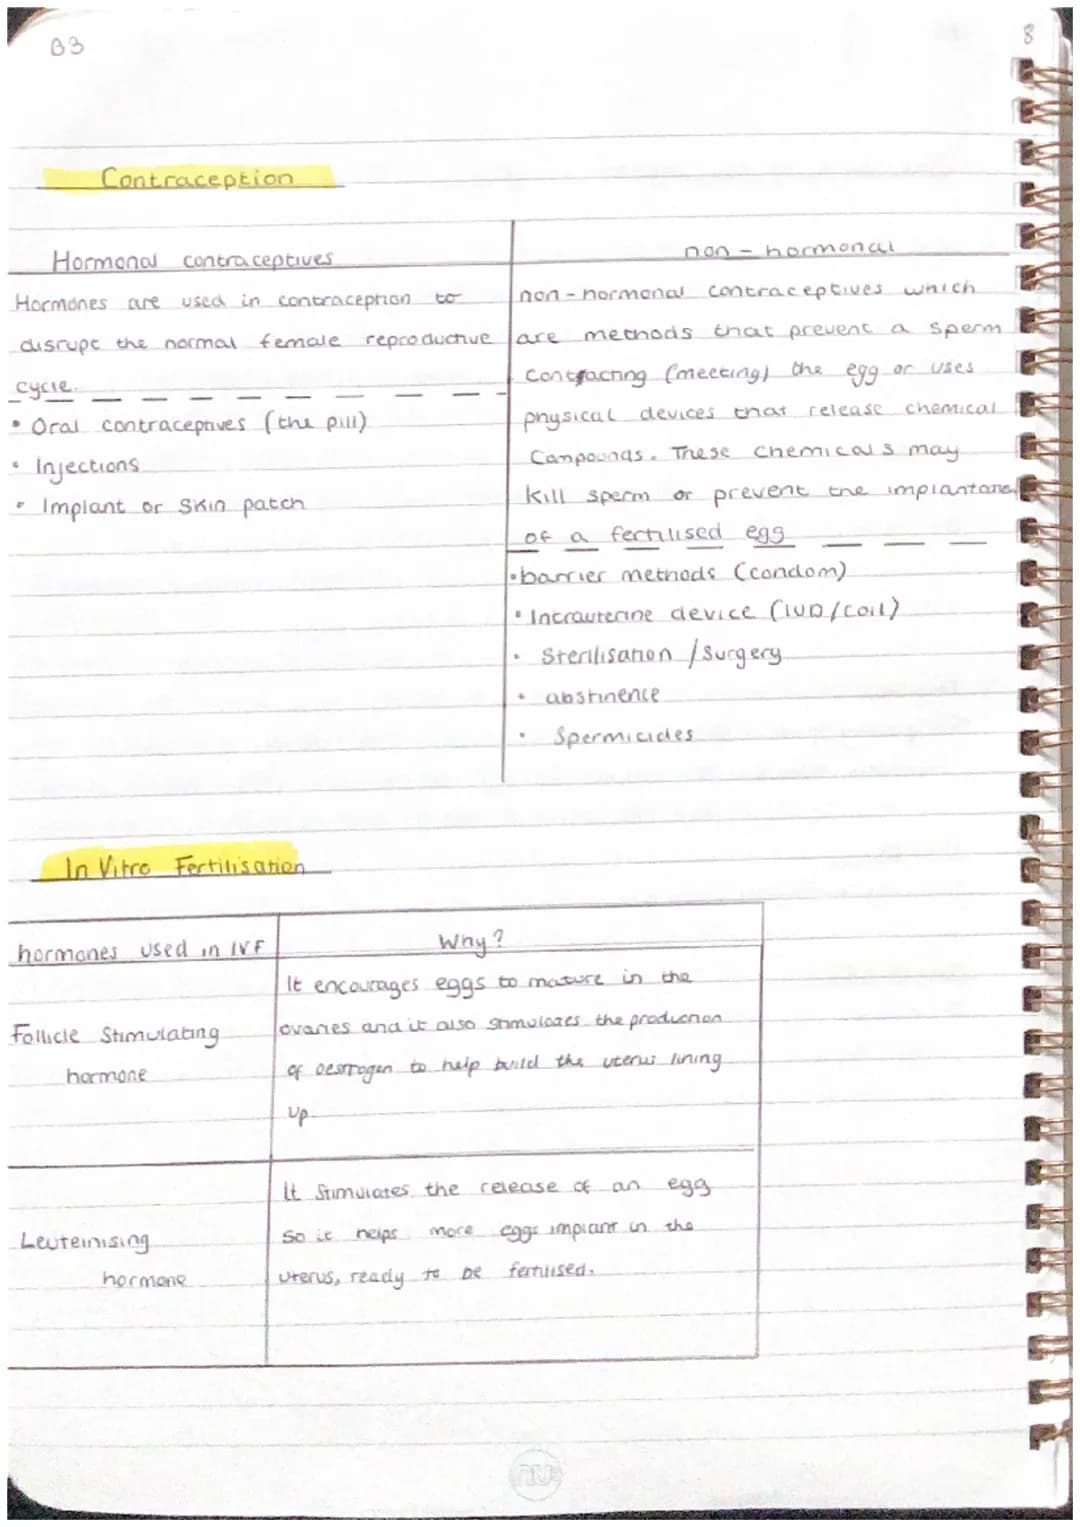 B3
8
Contraception
Hormonal contraceptives
Hormones are used in contraception to
disrupt the normal female reproductive
cycle.
• Oral contraceptives (the pill)
• Injections
• Implant or skin patch
non - hormonal
non - hormonal contraceptives which
are methods that prevent a sperm
contacting (meeting) the egg or uses
physical devices that release chemical
compounds. These chemicals may
kill sperm or prevent the
of a fertilised egg
• barrier methods (condom)
• Intrauterine device (IUD/coil)
• Sterilisation / Surgery
• abstinence
• Spermicides
In Vitro Fertilisation
hormones used in IVF
Why?
Follicle Stimulating
hormone
It encourages eggs to mature in the
ovaries and it also stimulates the production
of oestrogen to help build the uterus lining
up.
Leuteinising
hormone
It stimulates the release of an egg
so it helps more eggs implant in the
uterus, ready to be fertilised.
nu